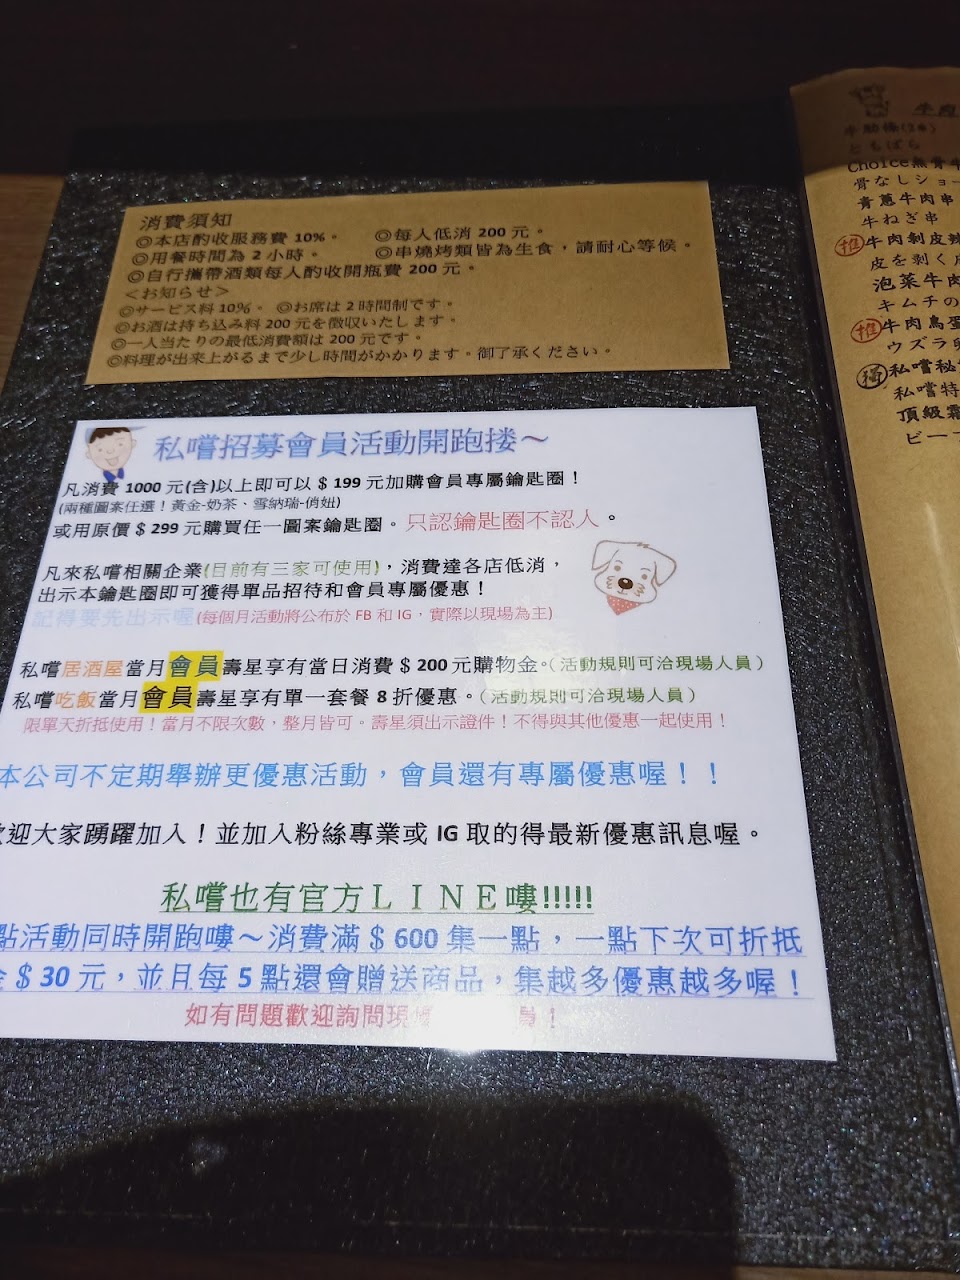 消費須知
◎本店酌收服務費 10%。 ◎每人低消 200 元。
◎用餐時間為 2 小時。 ◎串燒烤類皆為生食，請耐心等候。
◎自行攜帶酒類每人酌收開瓶費 200 元。
＜お知らせ＞
◎サービス料 10%。 ◎お席は 2 時間制です。
◎お酒は持ち込み料 200 元を徴収いたします。
◎一人当たりの最低消費額は 200 元です。
◎料理が出来上がるまで少し時間がかかります。御了承ください。
私嚐招募會員活動開跑摟～
凡消費 1000 元(含)以上即可以＄199 元加購會員專屬鑰匙圈！
(兩種圖案任選！黃金-奶茶、雪納瑞-俏妞)
或用原價＄299 元購買任一圖案鑰匙圈。只認鑰匙圈不認人。
凡來私嚐相關企業(目前有三家可使用)，消費達各店低消，
出示本鑰匙圈即可獲得單品招待和會員專屬優惠！
記得要先出示喔(每個月活動將公布於 FB 和 IG，實際以現場為主)
私嚐居酒屋當月會員壽星享有當日消費＄200 元購物金。（活動規則可洽現場人員）
私嚐吃飯當月會員壽星享有單一套餐 8 折優惠。（活動規則可洽現場人員）
限單天折抵使用！當月不限次數，整月皆可。壽星須出示證件！不得與其他優惠一起使用！
本公司不定期舉辦更優惠活動，會員還有專屬優惠喔！！
迎大家踴躍加入！並加入粉絲專業或 IG 取的得最新優惠訊息喔。
私嚐也有官方ＬＩＮＥ嘍!!!!!
點活動同時開跑嘍～消費滿＄600 集一點，一點下次可折抵
＄30 元，並且每 5 點還會贈送商品，集越多優惠越多喔！
如有問題歡迎詢問現
！
牛肉
牛肋條(2串)
ともばら
Choice無骨牛
骨なしショー
青蔥牛肉串
牛ねぎ串
推 牛肉剝皮辣
皮を剥く
泡菜牛肉
キムチの
推 牛肉鳥蛋
ウズラ
私嚐秘
私嚐特
頂級霜
ビー